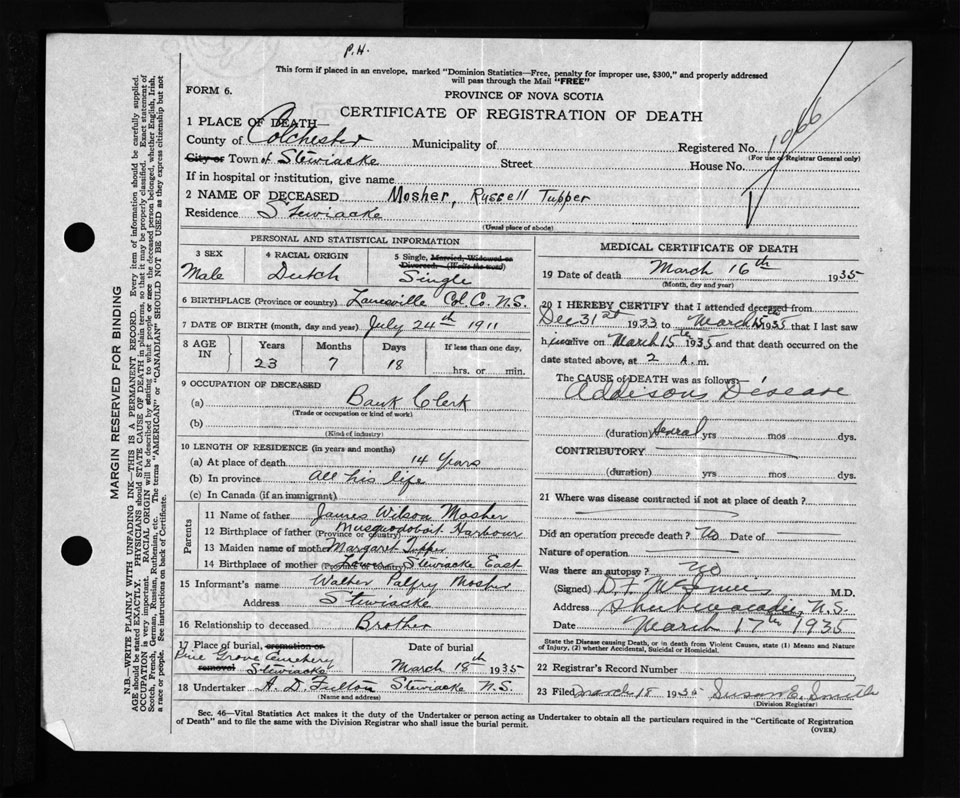 P.H.
This form if placed in an envelope, marked "Dominion Statistics—Free, penalty for improper use, $300," and properly addressed
will pass through the Mail "FREE"
FORM 6.
PROVINCE OF NOVA SCOTIA
CERTIFICATE OF REGISTRATION OF DEATH
1 PLACE OF DEATH—
County of Colchester Municipality of Registered No. 1066
(For use of Registrar General only)
City or Town of Stewiacke Street House No.
If in hospital or institution, give name
2 NAME OF DECEASED Mosher, Russell Tupper
Residence Stewiacke
(Usual place of abode)
PERSONAL AND STATISTICAL INFORMATION
3 SEX Male
4 RACIAL ORIGIN Dutch
5 Single, Married, Widowed or Divorced. (Write the word) Single
6 BIRTHPLACE (Province or country) Lanesville Col. Co. N.S.
7 DATE OF BIRTH (month, day and year) July 24th 1911
8 AGE IN Years 23 Months 7 Days 18 If less than one day, hrs. or min.
9 OCCUPATION OF DECEASED
(a) Bank Clerk
(Trade or occupation or kind of work)
(b)
(Kind of industry)
10 LENGTH OF RESIDENCE (in years and months)
(a) At place of death 14 Years
(b) In province All his life
(c) In Canada (if an immigrant)
Parents
11 Name of father James Wilson Mosher
12 Birthplace of father (Province or country) Musquodoboit Harbour
13 Maiden name of mother Margaret Tupper
14 Birthplace of mother (Province or country) Lower Stewiacke East
15 Informant's name Walter Palfry Mosher
Address Stewiacke
16 Relationship to deceased Brother
17 Place of burial, cremation or removal Pine Grove Cemetery Stewiacke
Date of burial March 18th 1935
18 Undertaker A. D. Fulton Stewiacke N.S.
(Name and address)
MEDICAL CERTIFICATE OF DEATH
19 Date of death March 16th 1935
(Month, day and year)
20 I HEREBY CERTIFY that I attended deceased from
Dec 31st 1933 to March 15th 1935 that I last saw
him alive on March 15th 1935 and that death occurred on the
date stated above, at 2 A. m.
The CAUSE of DEATH was as follows:—
Addisons Disease
(duration) Several yrs mos dys.
CONTRIBUTORY
(duration) yrs mos dys.
21 Where was disease contracted if not at place of death ?
Did an operation precede death ? No Date of
Nature of operation
Was there an autopsy ? No
(Signed) D. F. M.D.
Address Shubenacadie, N.S.
Date March 17th 1935
State the Disease causing Death, or in death from Violent Causes, state (1) Means and Nature
of Injury, (2) whether Accidental, Suicidal or Homicidal.
22 Registrar's Record Number
23 Filed March 18 1935 Susan E. Smith
(Division Registrar)
Sec. 46—Vital Statistics Act makes it the duty of the Undertaker or person acting as Undertaker to obtain all the particulars required in the "Certificate of Registration
of Death" and to file the same with the Division Registrar who shall issue the burial permit.
(OVER)
MARGIN RESERVED FOR BINDING
N.B.—WRITE PLAINLY WITH UNFADING INK—THIS IS A PERMANENT RECORD. Every item of information should be carefully supplied.
AGE should be stated EXACTLY. PHYSICIANS should STATE CAUSE OF DEATH in plain terms, so that it may be properly classified. Exact statement of
OCCUPATION is very important. RACIAL ORIGIN will be described by stating to what people or race the deceased person belonged, whether English, Irish,
Scotch, French, German, Russian, Ruthenian, etc. The terms "AMERICAN" or "CANADIAN" SHOULD NOT BE USED as they express citizenship but not
a race or people. See instructions on back of Certificate.